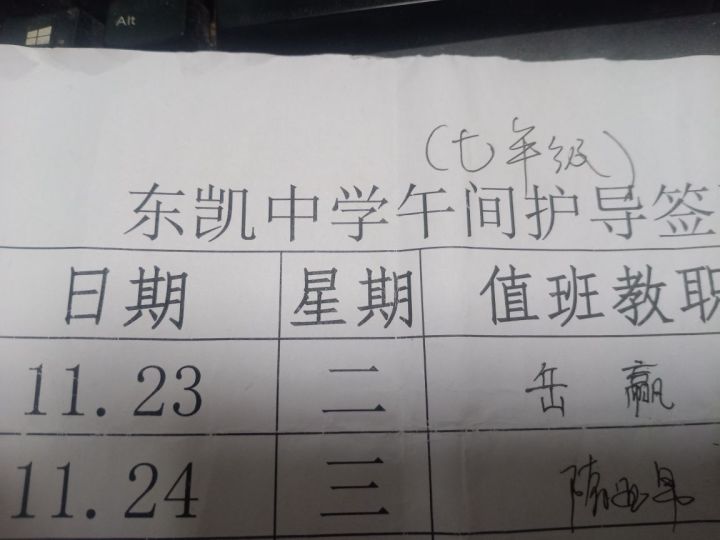 Alt
(七年级)
东凯中学午间护导签
日期 星期 值班教职
11.23 二 岳赢
11.24 三